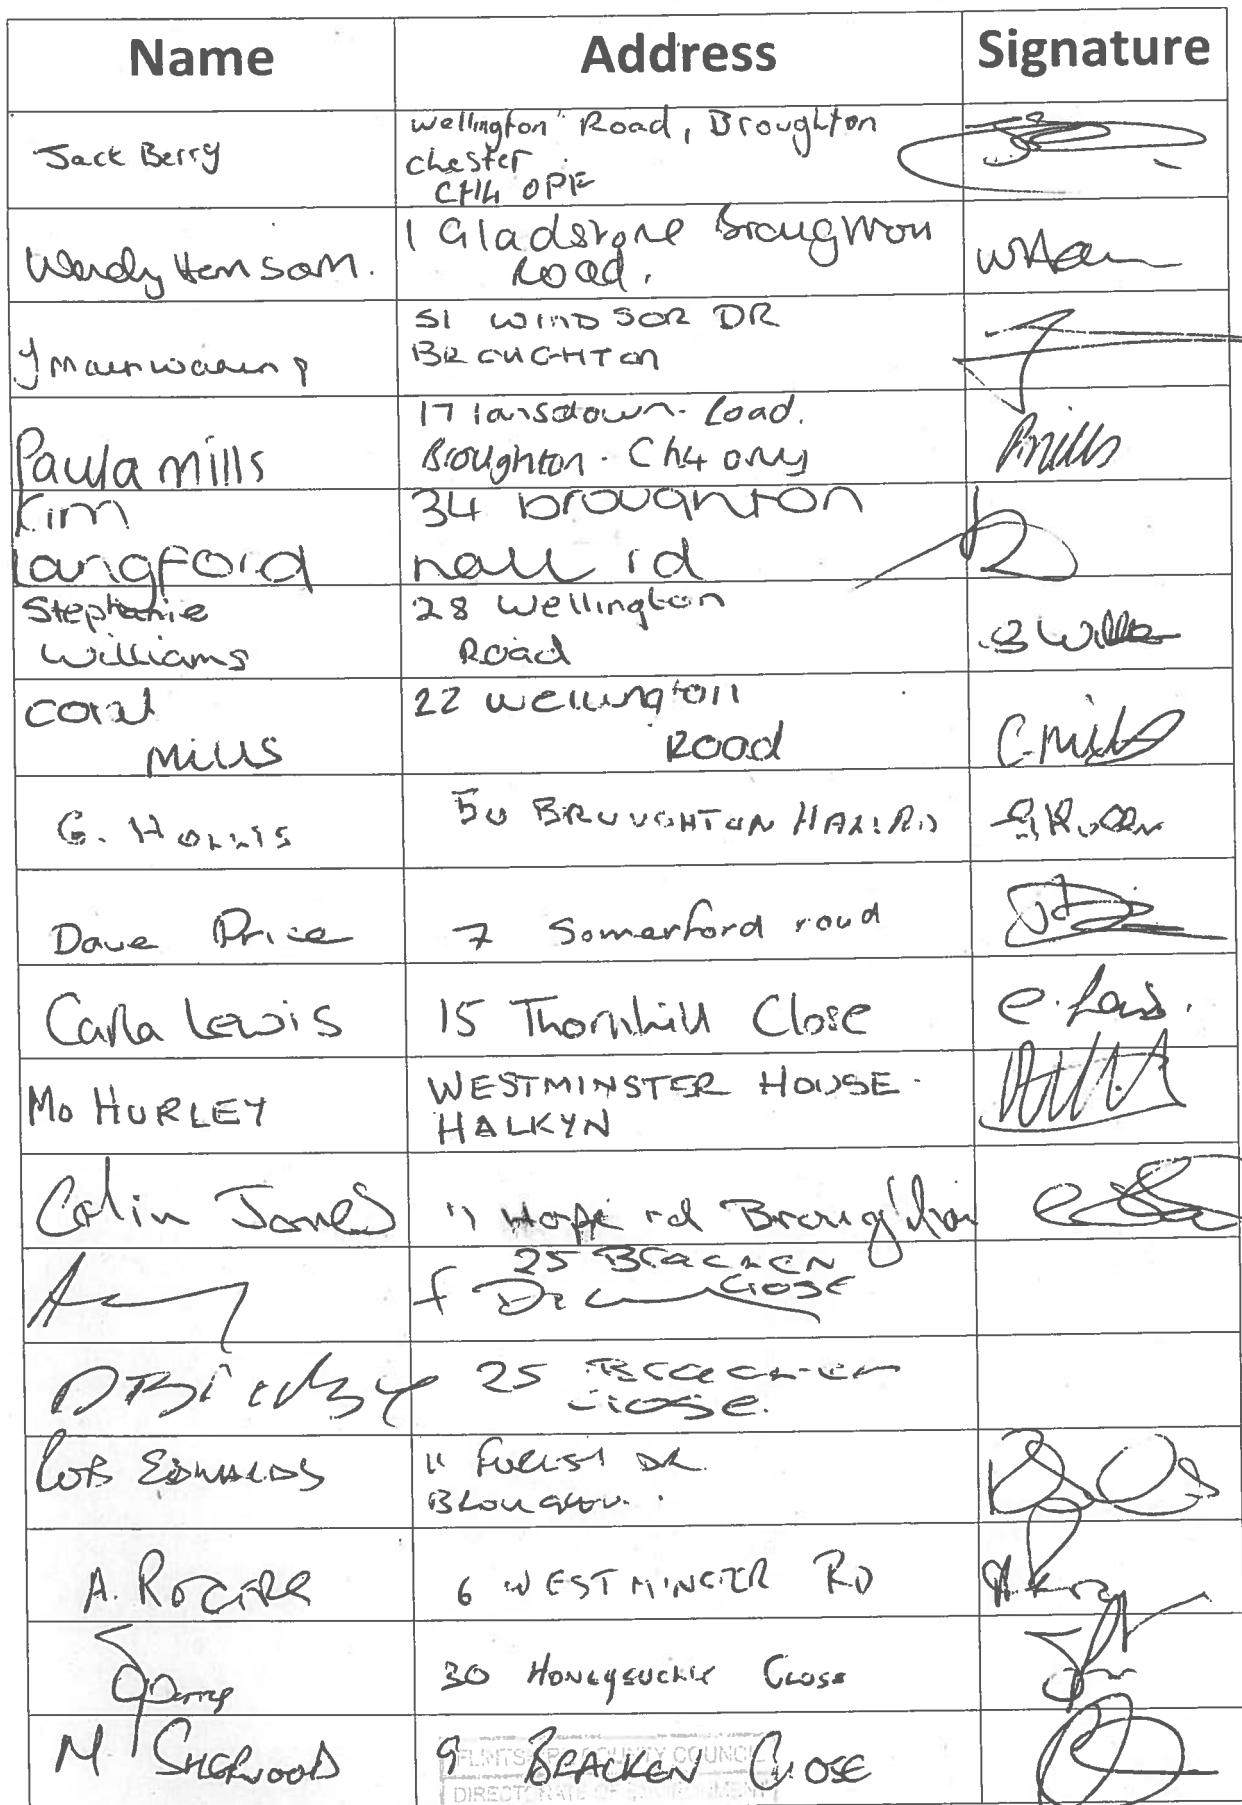 Name Address Signature
Jack Berry
Wellington Road, Broughton
Chester
CH4 0PF
Wendy Hemsom.
1 Gladstone Broughton
Road.
J Mainwaring
51 WINDSOR DR
BROUGHTON
Paula Mills
17 lansdown. Road.
Broughton. CH4
P Mills
Kim
Langford
34 broughton
hall rd
Stephanie
Williams
28 Wellington
Road
S
Coral
Mills
22 wellington
Road
C. Mills
G. HOLLIS
50 BROUGHTON HALL RD
Dave Price
7 Somerford road
Carla Lewis
15 Thornhill Close
C. Lewis.
MO HURLEY
WESTMINSTER HOUSE.
HALKYN
Colin Jones
11 Hope rd Broughton
25 Bracken
Close
25 Bracken
Close.
ROB EDWARDS
11 FOREST DR
BROUGHTON.
A. ROGERS
6 WESTMINSTER RD
30 HONEYSUCKLE CLOSE
M SHERWOOD
9 BRACKEN CLOSE
FLINTSHIRE COUNTY COUNCIL
DIRECTORATE OF ENVIRONMENT